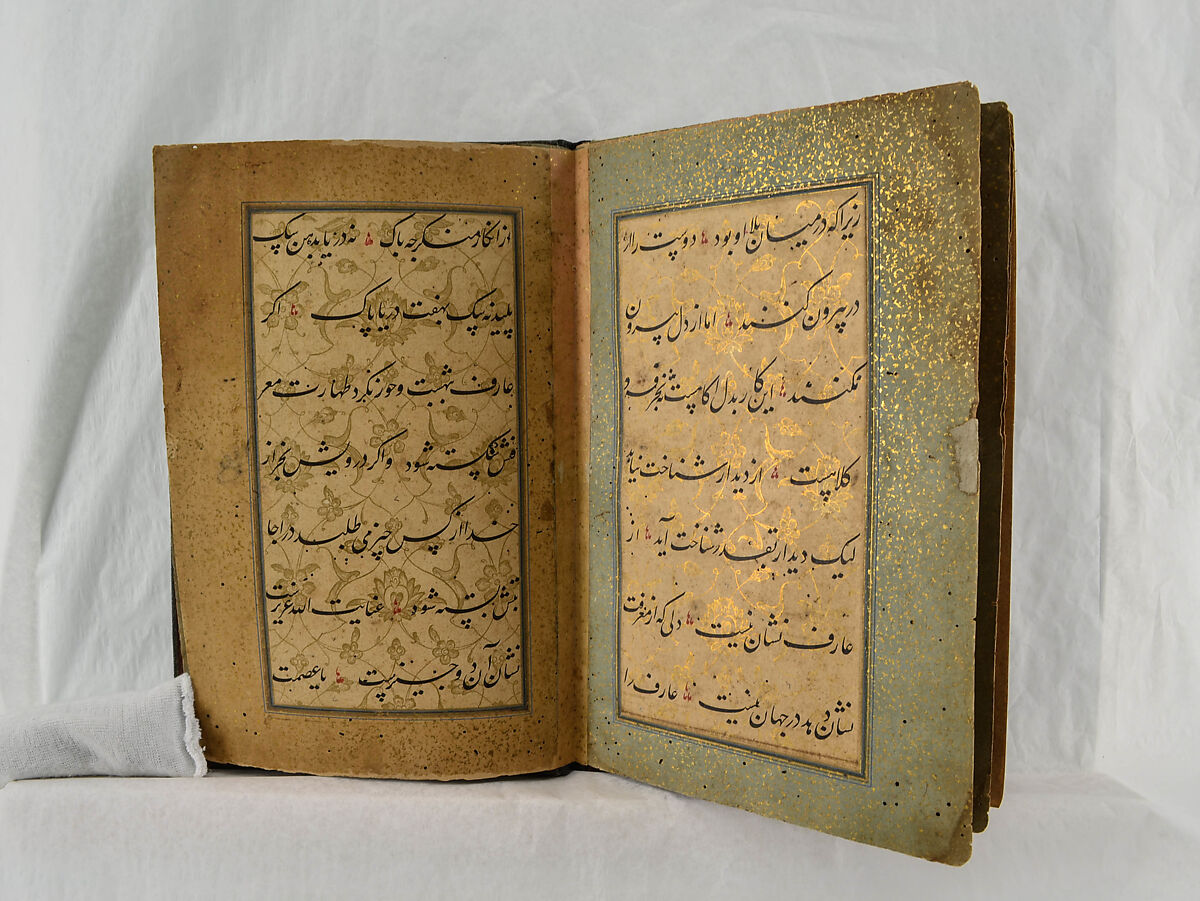 زیرا که در میان بلا او بود دوست را از
در بیرون کنند اما از دل بیرون
نکنند این کار بدل اکاهست نه بخرقه و
کلاهست از دیدار شناخت نیاید
لیک دیدار بقدر شناخت آید از
عارف نشان نیست دلی که از معرفت
نشان دهد در جهان نیست عارف را
از انکار منکر چه باک نه دریا بدهن سک
پلید نه سک بهفت دریا پاک اکر
عارف ببهشت و حور نکرد طهارت معر
فتش شکسته شود و اکر درویش بجز از
خدا از کس چیزی طلبد در اجا
بتش بسته شود عنایت الله عزیزست
نشان آن دو چیزست یا عصمت